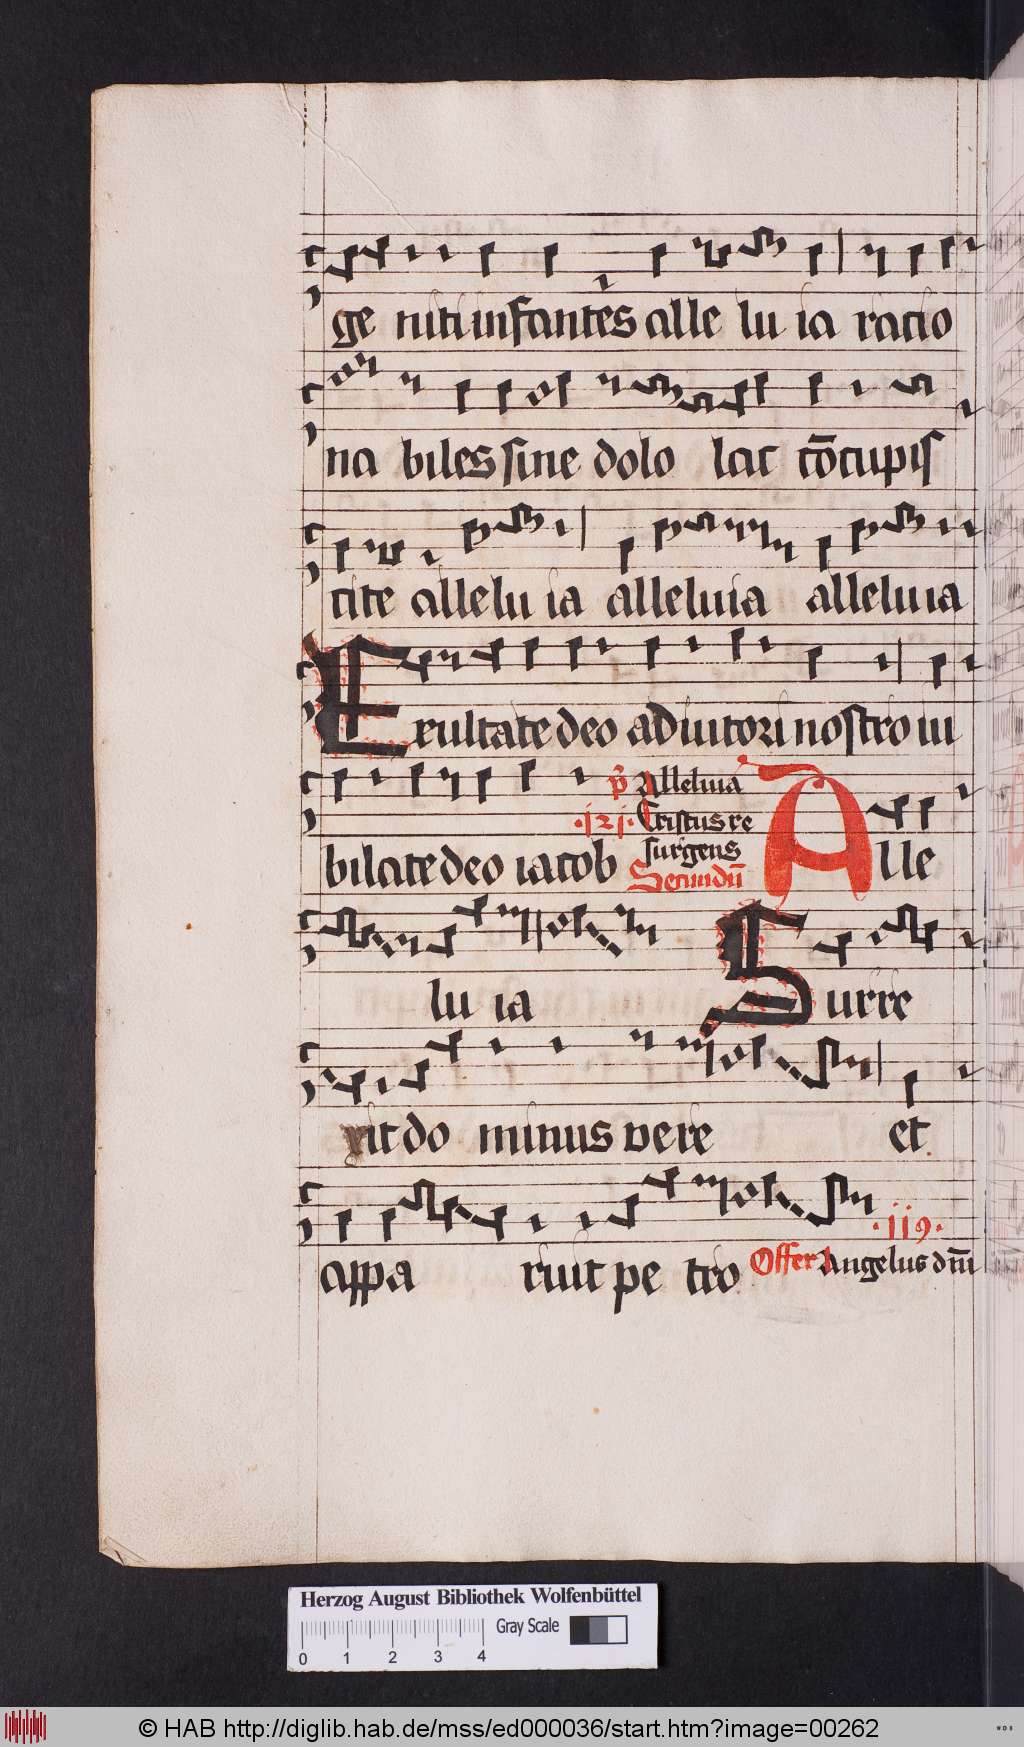 ge niti infantes alle lu ia racio
na biles sine dolo lac cōcupis
cite allelu ia alleluia alleluia
Exultate deo adiutori nostro iu
bilate deo iacob
p̄ Alleluia
.121. Cristus re
surgens
Secundū
Alle
lu ia Surre
xit do minus vere et
appa ruit pe tro
.119.
Offer Angelus dn̄i
Herzog August Bibliothek Wolfenbüttel
0 1 2 3 4
Gray Scale
© HAB http://diglib.hab.de/mss/ed000036/start.htm?image=00262
WDB